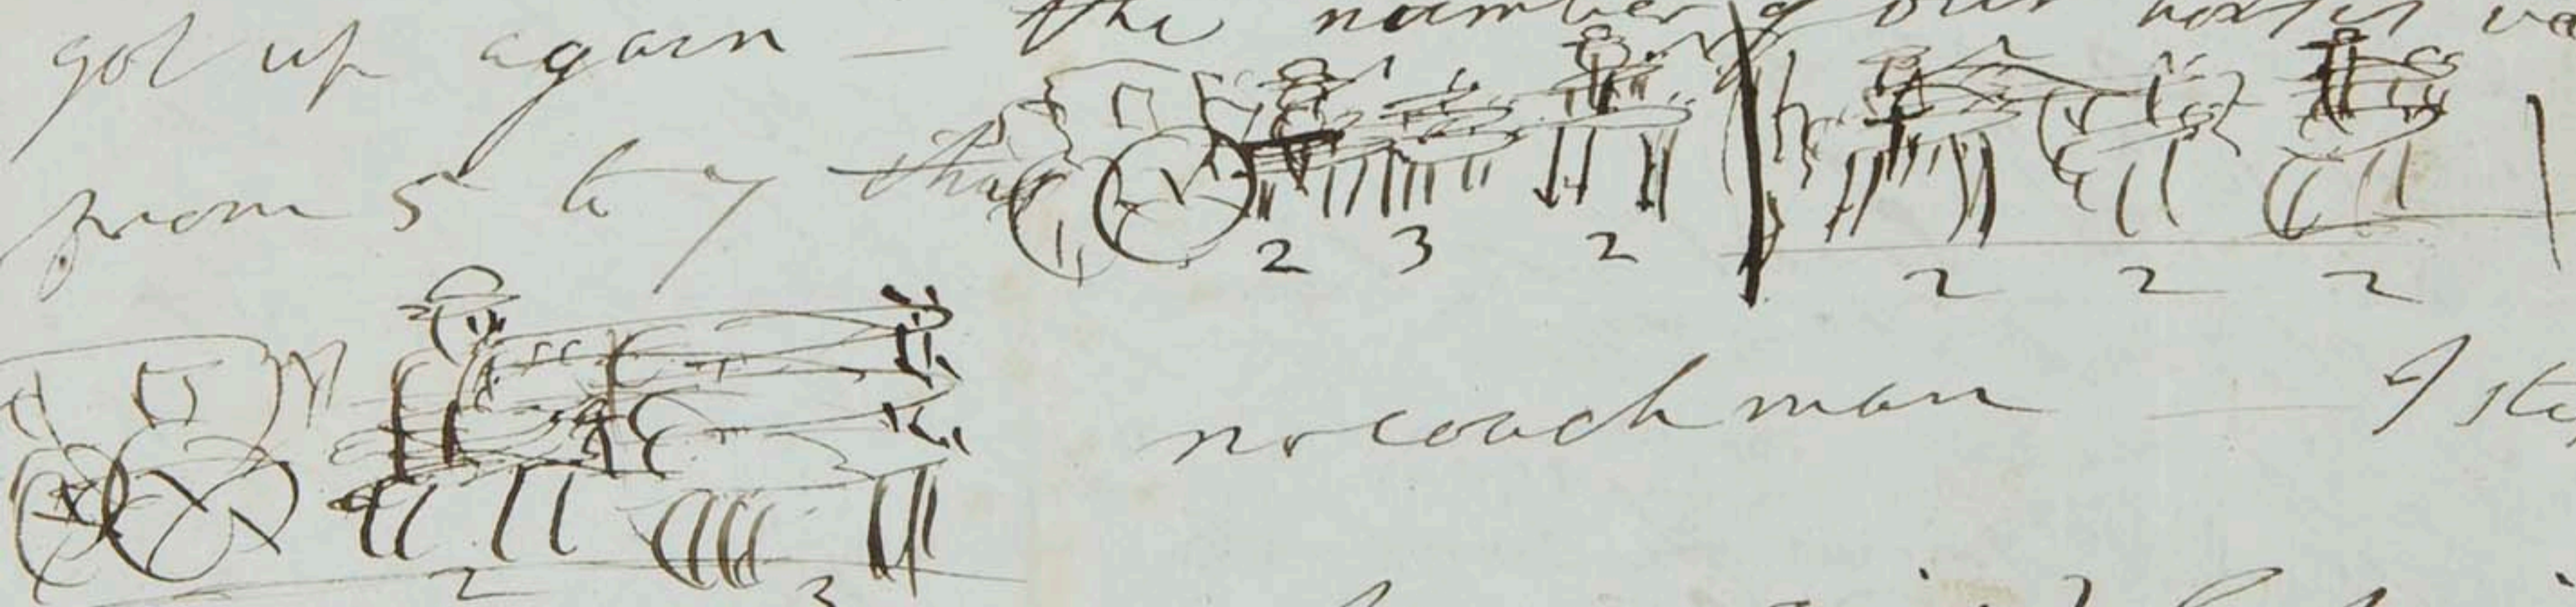 got up again — the number of our horses
from 5 to 7 thus
2 3 2 2 2 2
no coachman — I
2 3